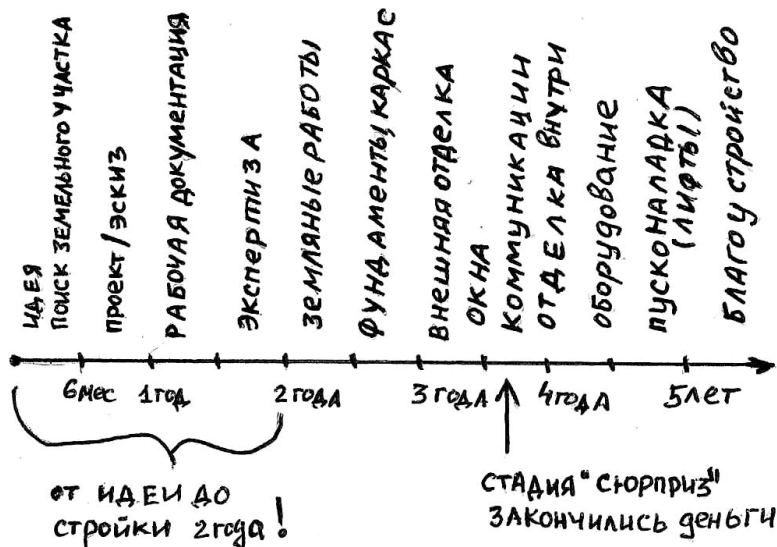 ИДЕЯ
ПОИСК ЗЕМЕЛЬНОГО УЧАСТКА
ПРОЕКТ/ЭСКИЗ
РАБОЧАЯ ДОКУМЕНТАЦИЯ
ЭКСПЕРТИЗА
ЗЕМЛЯНЫЕ РАБОТЫ
ФУНДАМЕНТЫ, КАРКАС
ВНЕШНАЯ ОТДЕЛКА
ОКНА
КОММУНИКАЦИИ
ОТДЕЛКА ВНУТРИ
ОБОРУДОВАНИЕ
ПУСКОНАЛАДКА
(ЛИФТЫ)
БЛАГОУСТРОЙСТВО
6МЕС 1ГОД 2ГОДА 3ГОДА 4ГОДА 5ЛЕТ
ОТ ИДЕИ ДО
СТРОЙКИ 2года!
СТАДИЯ "СЮРПРИЗ"
ЗАКОНЧИЛИСЬ деньги